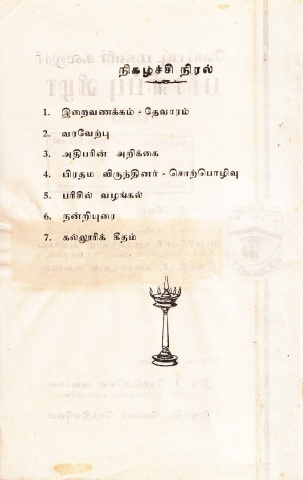 நிகழ்ச்சி நிரல்
1. இறைவணக்கம் - தேவாரம்
2. வரவேற்பு
3. அதிபரின் அறிக்கை
4. பிரதம விருந்தினர் - சொற்பொழிவு
5. பரிசில் வழங்கல்
6. நன்றியுரை
7. கல்லூரிக் கீதம்